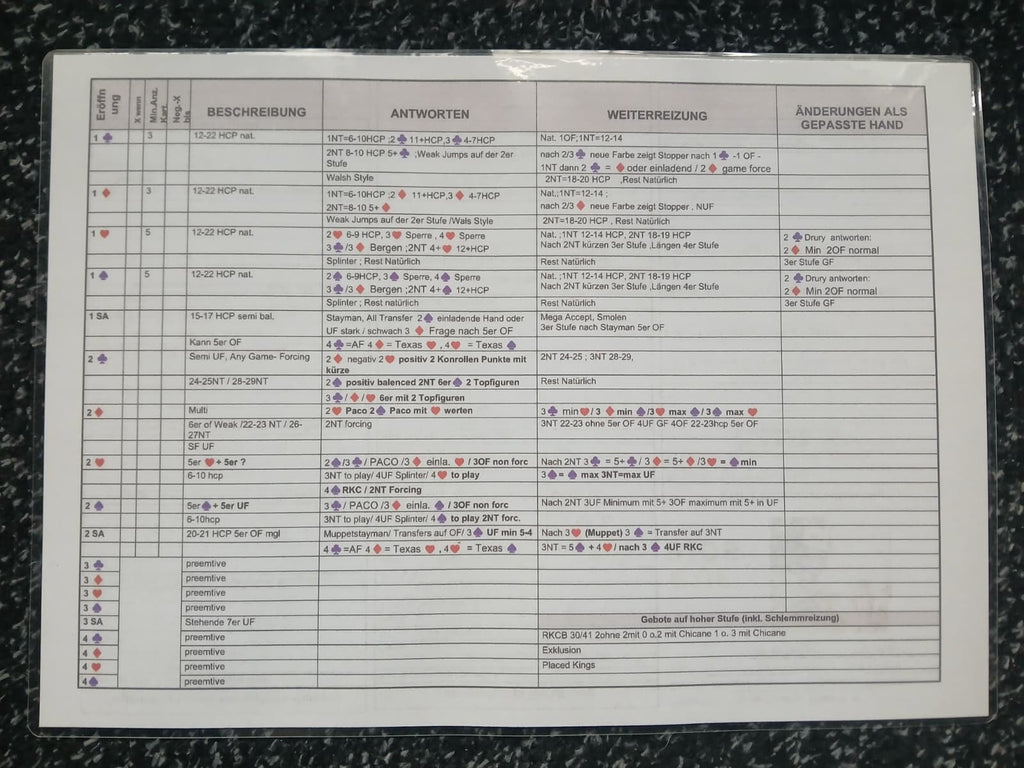 Eröffn ung
X wenn
Min.Anz. Kart.
Neg.-X bis
BESCHREIBUNG
ANTWORTEN
WEITERREIZUNG
ÄNDERUNGEN ALS GEPASSTE HAND
1 ♣ 3 12-22 HCP nat. 1NT=6-10HCP ;2 ♣ 11+HCP,3 ♣ 4-7HCP Nat. 1OF;1NT=12-14
2NT 8-10 HCP 5+ ♣ ;Weak Jumps auf der 2er Stufe nach 2/3 ♣ neue Farbe zeigt Stopper nach 1 ♣ -1 OF - 1NT dann 2 ♣ = ♦ oder einladend / 2 ♦ game force
Walsh Style 2NT=18-20 HCP ,Rest Natürlich
1 ♦ 3 12-22 HCP nat. 1NT=6-10HCP ;2 ♦ 11+HCP,3 ♦ 4-7HCP Nat.;1NT=12-14 ;
2NT=8-10 5+ ♦ nach 2/3 ♦ neue Farbe zeigt Stopper , NUF
Weak Jumps auf der 2er Stufe /Wals Style 2NT=18-20 HCP , Rest Natürlich
1 ♥ 5 12-22 HCP nat. 2♥ 6-9 HCP, 3♥ Sperre , 4♥ Sperre Nat. ;1NT 12-14 HCP, 2NT 18-19 HCP 2 ♣ Drury antworten:
3♣/3♦ Bergen ;2NT 4+♥ 12+HCP Nach 2NT kürzen 3er Stufe ,Längen 4er Stufe 2 ♦ Min 2OF normal
Splinter ; Rest Natürlich Rest Natürlich 3er Stufe GF
1 ♠ 5 12-22 HCP nat. 2♠ 6-9HCP, 3♠ Sperre, 4♠ Sperre Nat. ;1NT 12-14 HCP, 2NT 18-19 HCP 2 ♣ Drury antworten:
3♣/3♦ Bergen ;2NT 4+♠ 12+HCP Nach 2NT kürzen 3er Stufe ,Längen 4er Stufe 2 ♦ Min 2OF normal
Splinter ; Rest natürlich Rest Natürlich 3er Stufe GF
1 SA 15-17 HCP semi bal, Stayman, All Transfer 2♠ einladende Hand oder Mega Accept, Smolen
UF stark / schwach 3 ♦ Frage nach 5er OF 3er Stufe nach Stayman 5er OF
Kann 5er OF 4♣=AF 4♦ = Texas ♥ ,4♥ = Texas ♠
2 ♣ Semi UF, Any Game- Forcing 2♦ negativ 2♥ positiv 2 Konrollen Punkte mit kürze 2NT 24-25 ; 3NT 28-29,
24-25NT / 28-29NT 2♠ positiv balenced 2NT 6er♠ 2 Topfiguren Rest Natürlich
3♣/♦/♥ 6er mit 2 Topfiguren
2♦ Multi 2♥ Paco 2♠ Paco mit ♥ werten 3♣ min♥/3 ♦ min ♠/3♥ max ♠/3♠ max ♥
6er of Weak /22-23 NT / 26-27NT 2NT forcing 3NT 22-23 ohne 5er OF 4UF GF 4OF 22-23hcp 5er OF
SF UF
2 ♥ 5er ♥+ 5er ? 2♠/3♣/ PACO /3♦ einla. ♥ / 3OF non forc Nach 2NT 3♣ = 5+♣/ 3♦ = 5+♦/3♥ = ♠min
6-10 hcp 3NT to play/ 4UF Splinter/ 4♥ to play 3♠= ♠ max 3NT=max UF
4♠RKC / 2NT Forcing
2 ♠ 5er♠+ 5er UF 3♣/ PACO /3♦ einla. ♠ / 3OF non forc Nach 2NT 3UF Minimum mit 5+ 3OF maximum mit 5+ in UF
6-10hcp 3NT to play/ 4UF Splinter/ 4♠ to play 2NT forc.
2 SA 20-21 HCP 5er OF mgl Muppetstayman/ Transfers auf OF/ 3♠ UF min 5-4 Nach 3♥ (Muppet) 3 ♠ = Transfer auf 3NT
4♣=AF 4♦ = Texas ♥ ,4♥ = Texas ♠ 3NT = 5♠ + 4♥/ nach 3 ♠ 4UF RKC
3 ♣ preemtive
3 ♦ preemtive
3 ♥ preemtive
3 ♠ preemtive
3 SA Stehende 7er UF Gebote auf hoher Stufe (inkl. Schlemmreizung)
4 ♣ preemtive RKCB 30/41 2ohne 2mit 0 o.2 mit Chicane 1 o. 3 mit Chicane
4 ♦ preemtive Exklusion
4 ♥ preemtive Placed Kings
4♠ preemtive